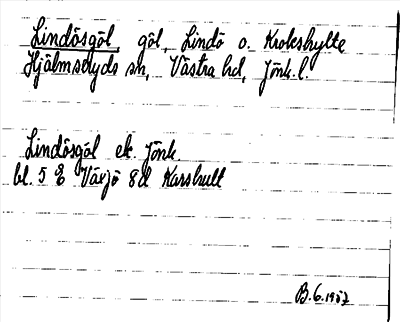 Lindösgöl, göl, Lindö o. Krokshylte
Hjälmseryds sn, Västra hd, Jönk. l.
Lindösgöl ek. Jönk
bl. 5 E Växjö 8d Karshult
B.6.1957